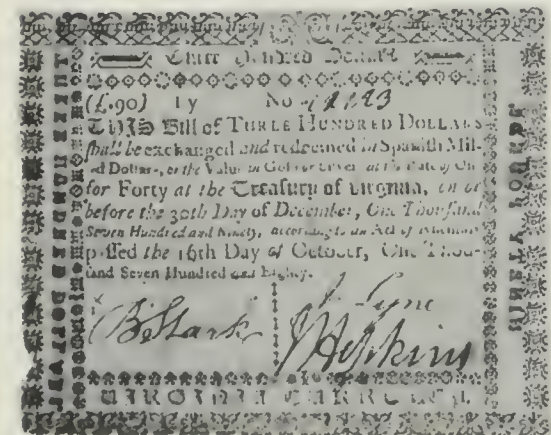 Three Hundred Dollars
(£.90) 1 y No 12123
THIS Bill of THREE HUNDRED DOLLARS
shall be exchanged and redeemed in Spanish Mil-
led Dollars, or the Value in Gold or Silver, at the Rate of One
for Forty at the Treasury of Virginia, on or
before the 30th Day of December, One Thousand
Seven Hundred and Ninety, according to an Act of Assembly
passed the 16th Day of October, One Thou-
sand Seven Hundred and Eighty.
B: Stark
Lyne
J Hopkins
VIRGINIA CURRENCY.
THREE HUNDRED DOLLARS